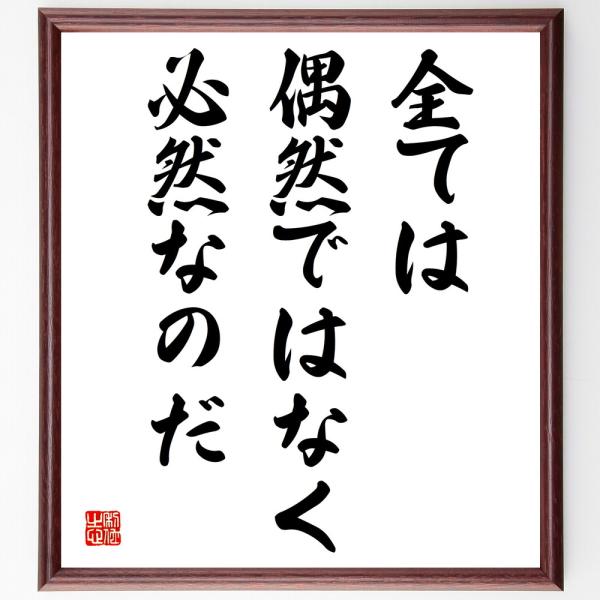 全ては
偶然ではなく
必然なのだ